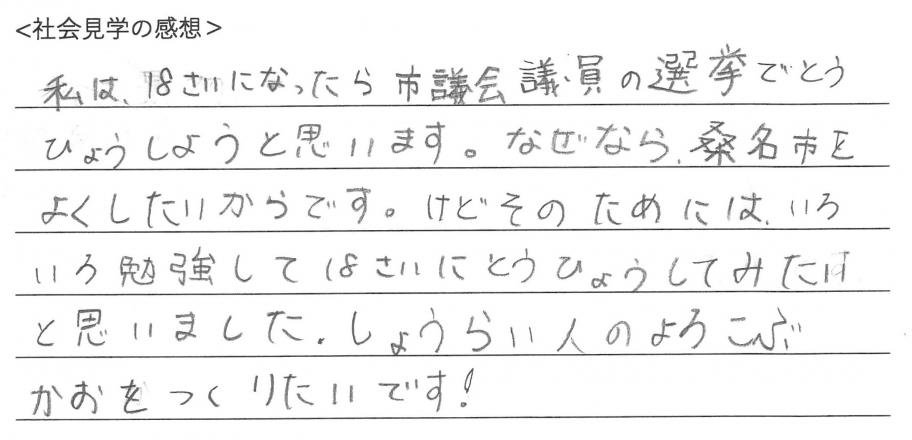 <社会見学の感想>
私は、18さいになったら市議会議員の選挙でとう
ひょうしようと思います。なぜなら、桑名市を
よくしたいからです。けどそのためには、いろ
いろ勉強して18さいにとうひょうしてみたい
と思いました。しょうらい人のよろこぶ
かおをつくりたいです!